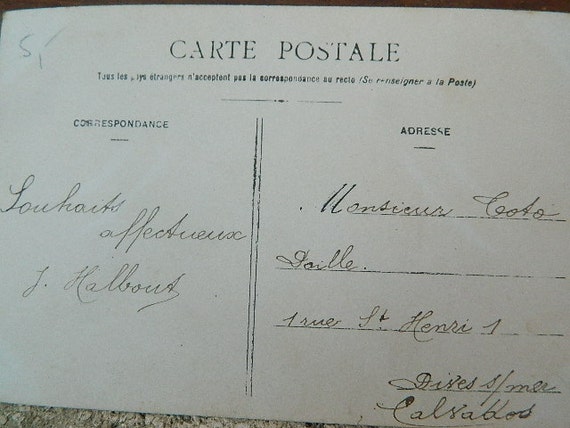 5,
CARTE POSTALE
Tous les pays étrangers n'acceptent pas la correspondance au recto (Se renseigner à la Poste)
CORRESPONDANCE
Souhaits
affectueux
J. Halbout
ADRESSE
Monsieur Toto
Doille.
1 rue St Henri 1
Dives s/mer
Calvados